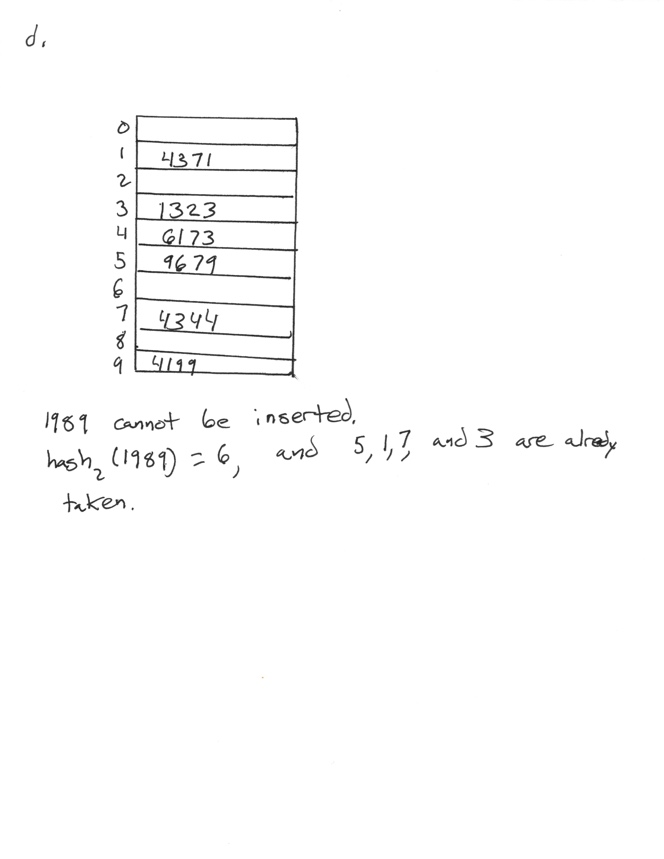 d.
0
1 4371
2
3 1323
4 6173
5 9679
6
7 4344
8
9 4199
1989 cannot be inserted.
hash₂ (1989) = 6, and 5, 1, 7, and 3 are alredy
taken.